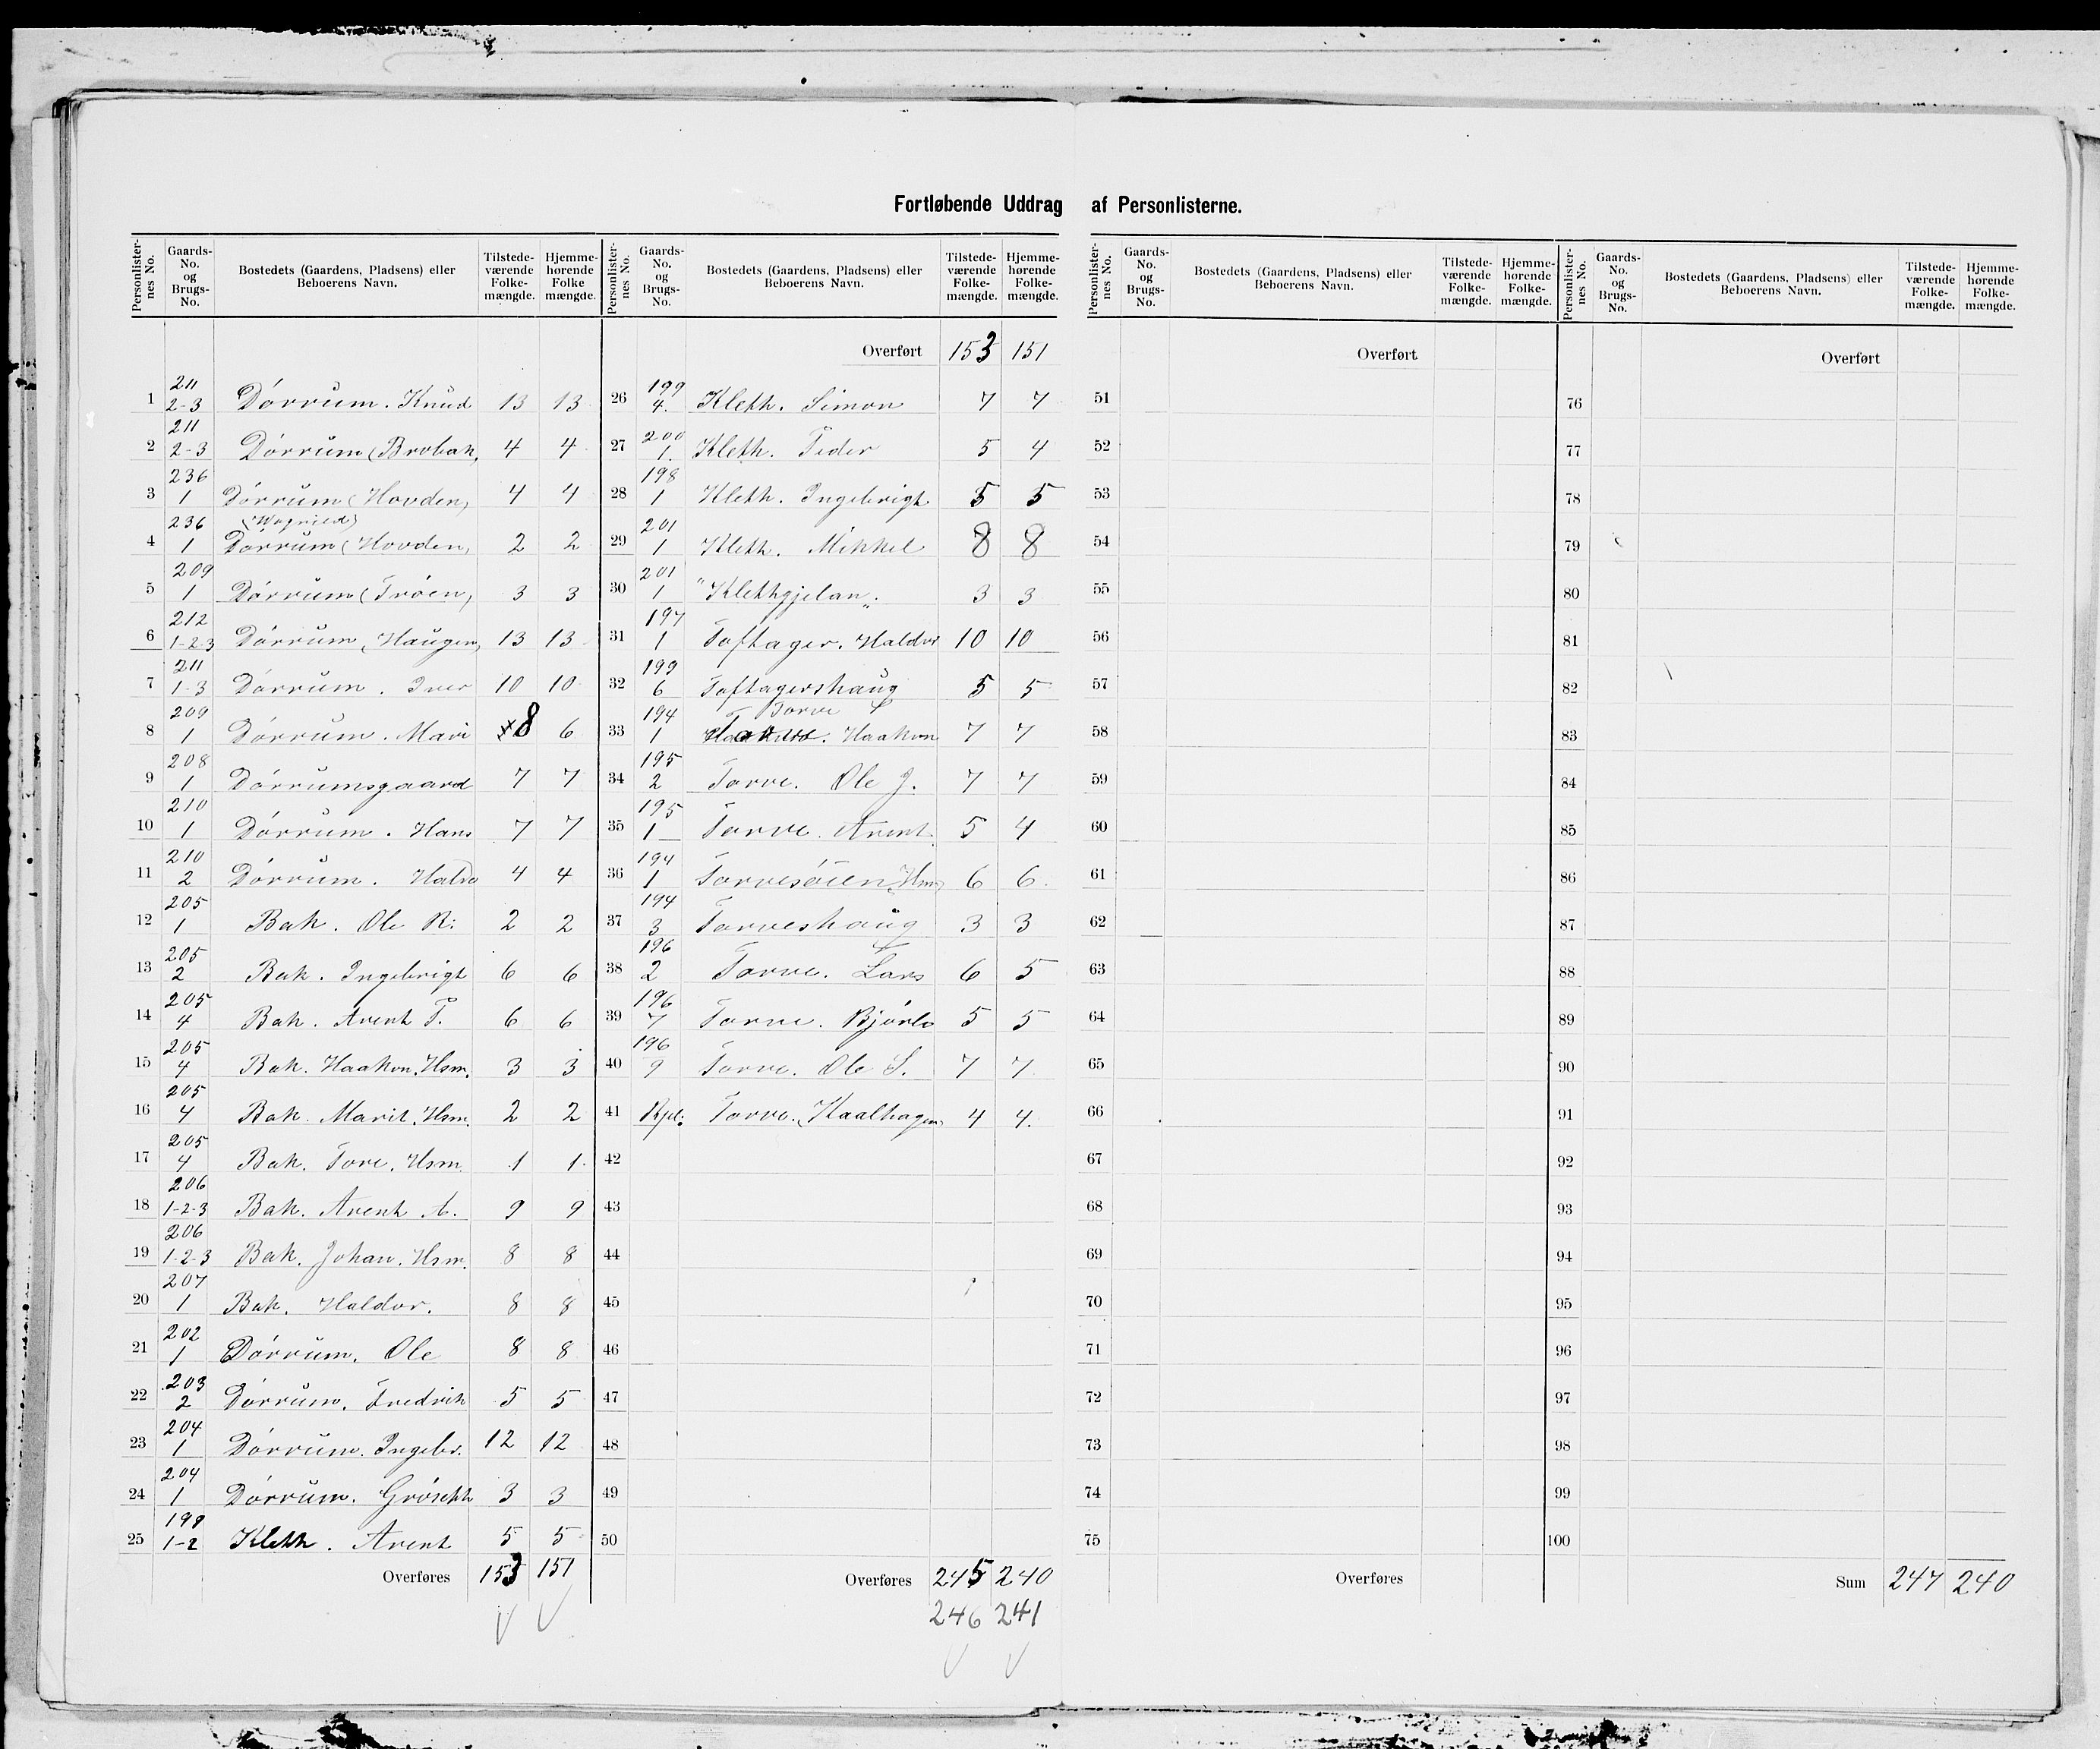 Fortløbende Uddrag af Personlisterne.
Personlister-nes No. Gaards-No. og Brugs-No. Bostedets (Gaardens, Pladsens) eller Beboerens Navn. Tilstede-værende Folke-mængde. Hjemme-hørende Folke mængde. Personlister-nes No. Gaards-No. og Brugs-No. Bostedets (Gaardens, Pladsens) eller Beboerens Navn. Tilstede-værende Folke-mængde. Hjemme-hørende Folke-mængde. Personlister-nes No. Gaards-No. og Brugs-No. Bostedets (Gaardens, Pladsens) eller Beboerens Navn. Tilstede-værende Folke-mængde. Hjemme-hørende Folke-mængde. Personlister-nes No. Gaards-No. og Brugs-No. Bostedets (Gaardens, Pladsens) eller Beboerens Navn. Tilstede-værende Folke-mængde. Hjemme-hørende Folke-mængde.
1 211 2-3 Dørrum. Knud 13 13
2 211 2-3 Dørrum (Brobak) 4 4
3 236 1 Dørrum (Hovden) 4 4
4 236 1 Dørrum (Hovden) 2 2
5 209 1 Dørrum (Trøen) 3 3
6 212 1-2-3 Dørrum (Haugen) 13 13
7 211 1-3 Dørrum. Iver 10 10
8 209 1 Dørrum. Mari 8 6
9 208 1 Dørrumsgaard 7 7
10 210 1 Dørrum. Hans 7 7
11 210 2 Dørrum. Haldo 4 4
12 205 1 Bak. Ole R. 2 2
13 205 2 Bak. Ingebrigt 6 6
14 205 4 Bak. Arent T. 6 6
15 205 4 Bak. Haakon. Hsm. 3 3
16 205 4 Bak. Marit. Hsm. 2 2
17 205 4 Bak. Tore. Hsm. 1 1
18 206 1-2-3 Bak. Arent A. 9 9
19 206 1-2-3 Bak. Johan. Hsm. 8 8
20 207 1 Bak. Haldor. 8 8
21 202 1 Dørrum. Ole 8 8
22 203 2 Dørrum. Fredrik 5 5
23 204 1 Dørrum. Ingebr. 12 12
24 204 1 Dørrum. 3 3
25 198 1-2 Kleth. Arent 5 5
Overføres 153 151
Overført 153 151
26 199 4. Kleth. Simon 7 7
27 200 1. Kleth. Peder 5 4
28 198 1 Kleth. Ingebrigt 5 5
29 201 1 Kleth. Mikkel 8 8
30 201 1 "Klethgjelan" 3 3
31 197 1 Toftager. Haldor 10 10
32 199 6 Toftagershaug 5 5
33 194 1 Torve Haakon 7 7
34 195 2 Torve. Ole J. 7 7
35 195 1 Torve. Arent 5 4
36 194 1 Torvesøien (Hsm) 6 6
37 194 3 Torveshaug 3 3
38 196 2 Torve. Lars 6 5
39 196 7 Torve. 5 5
40 196 9 Torve. Ole S. 7 7
41 Rpl. Torve. (Kaalhagen) 4 4.
42
43
44
45
46
47
48
49
50
Overføres 245 240
246 241
Overført
51
52
53
54
55
56
57
58
59
60
61
62
63
64
65
66
67
68
69
70
71
72
73
74
75
Overføres
Overført
76
77
78
79
80
81
82
83
84
85
86
87
88
89
90
91
92
93
94
95
96
97
98
99
100
Sum 247 240